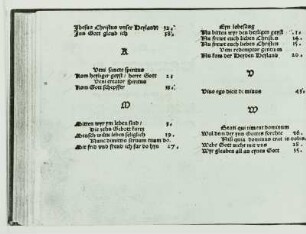 Jhesus Christus unser Heylandt 12.
Jnn Gott gelaub ich 38.
K
Veni sancte spiritus
Kom heyliger geyst / herre Gott 23
Veni creator spiritus
Kom Gott schepffer
M
Mitten wyr ym leben sind / 5.
Die zehn Gebott kurtz
Mensch wiltu leben seliglich 19.
Nunc dimittis servum tuum do.
Mit frid und freud ich far do hyn 27.
Eyn lobesang
Nu bitten wyr den heyligen geyst 1.
Nu frewt euch lieben Christen 14.
Nu frewt euch lieben Christen 15.
Veni redemptor gentium
Nu kom der Heyden Heyland 20.
V
Vivo ego dicit dominus 45.
W
Beati qui timent dominum
Wol dem der ynn Gottes forchte 26.
Nisi quia dominus erat in nobis
Wehr Gott nicht mit uns 28.
Wyr glauben all an eynen Gott 35.